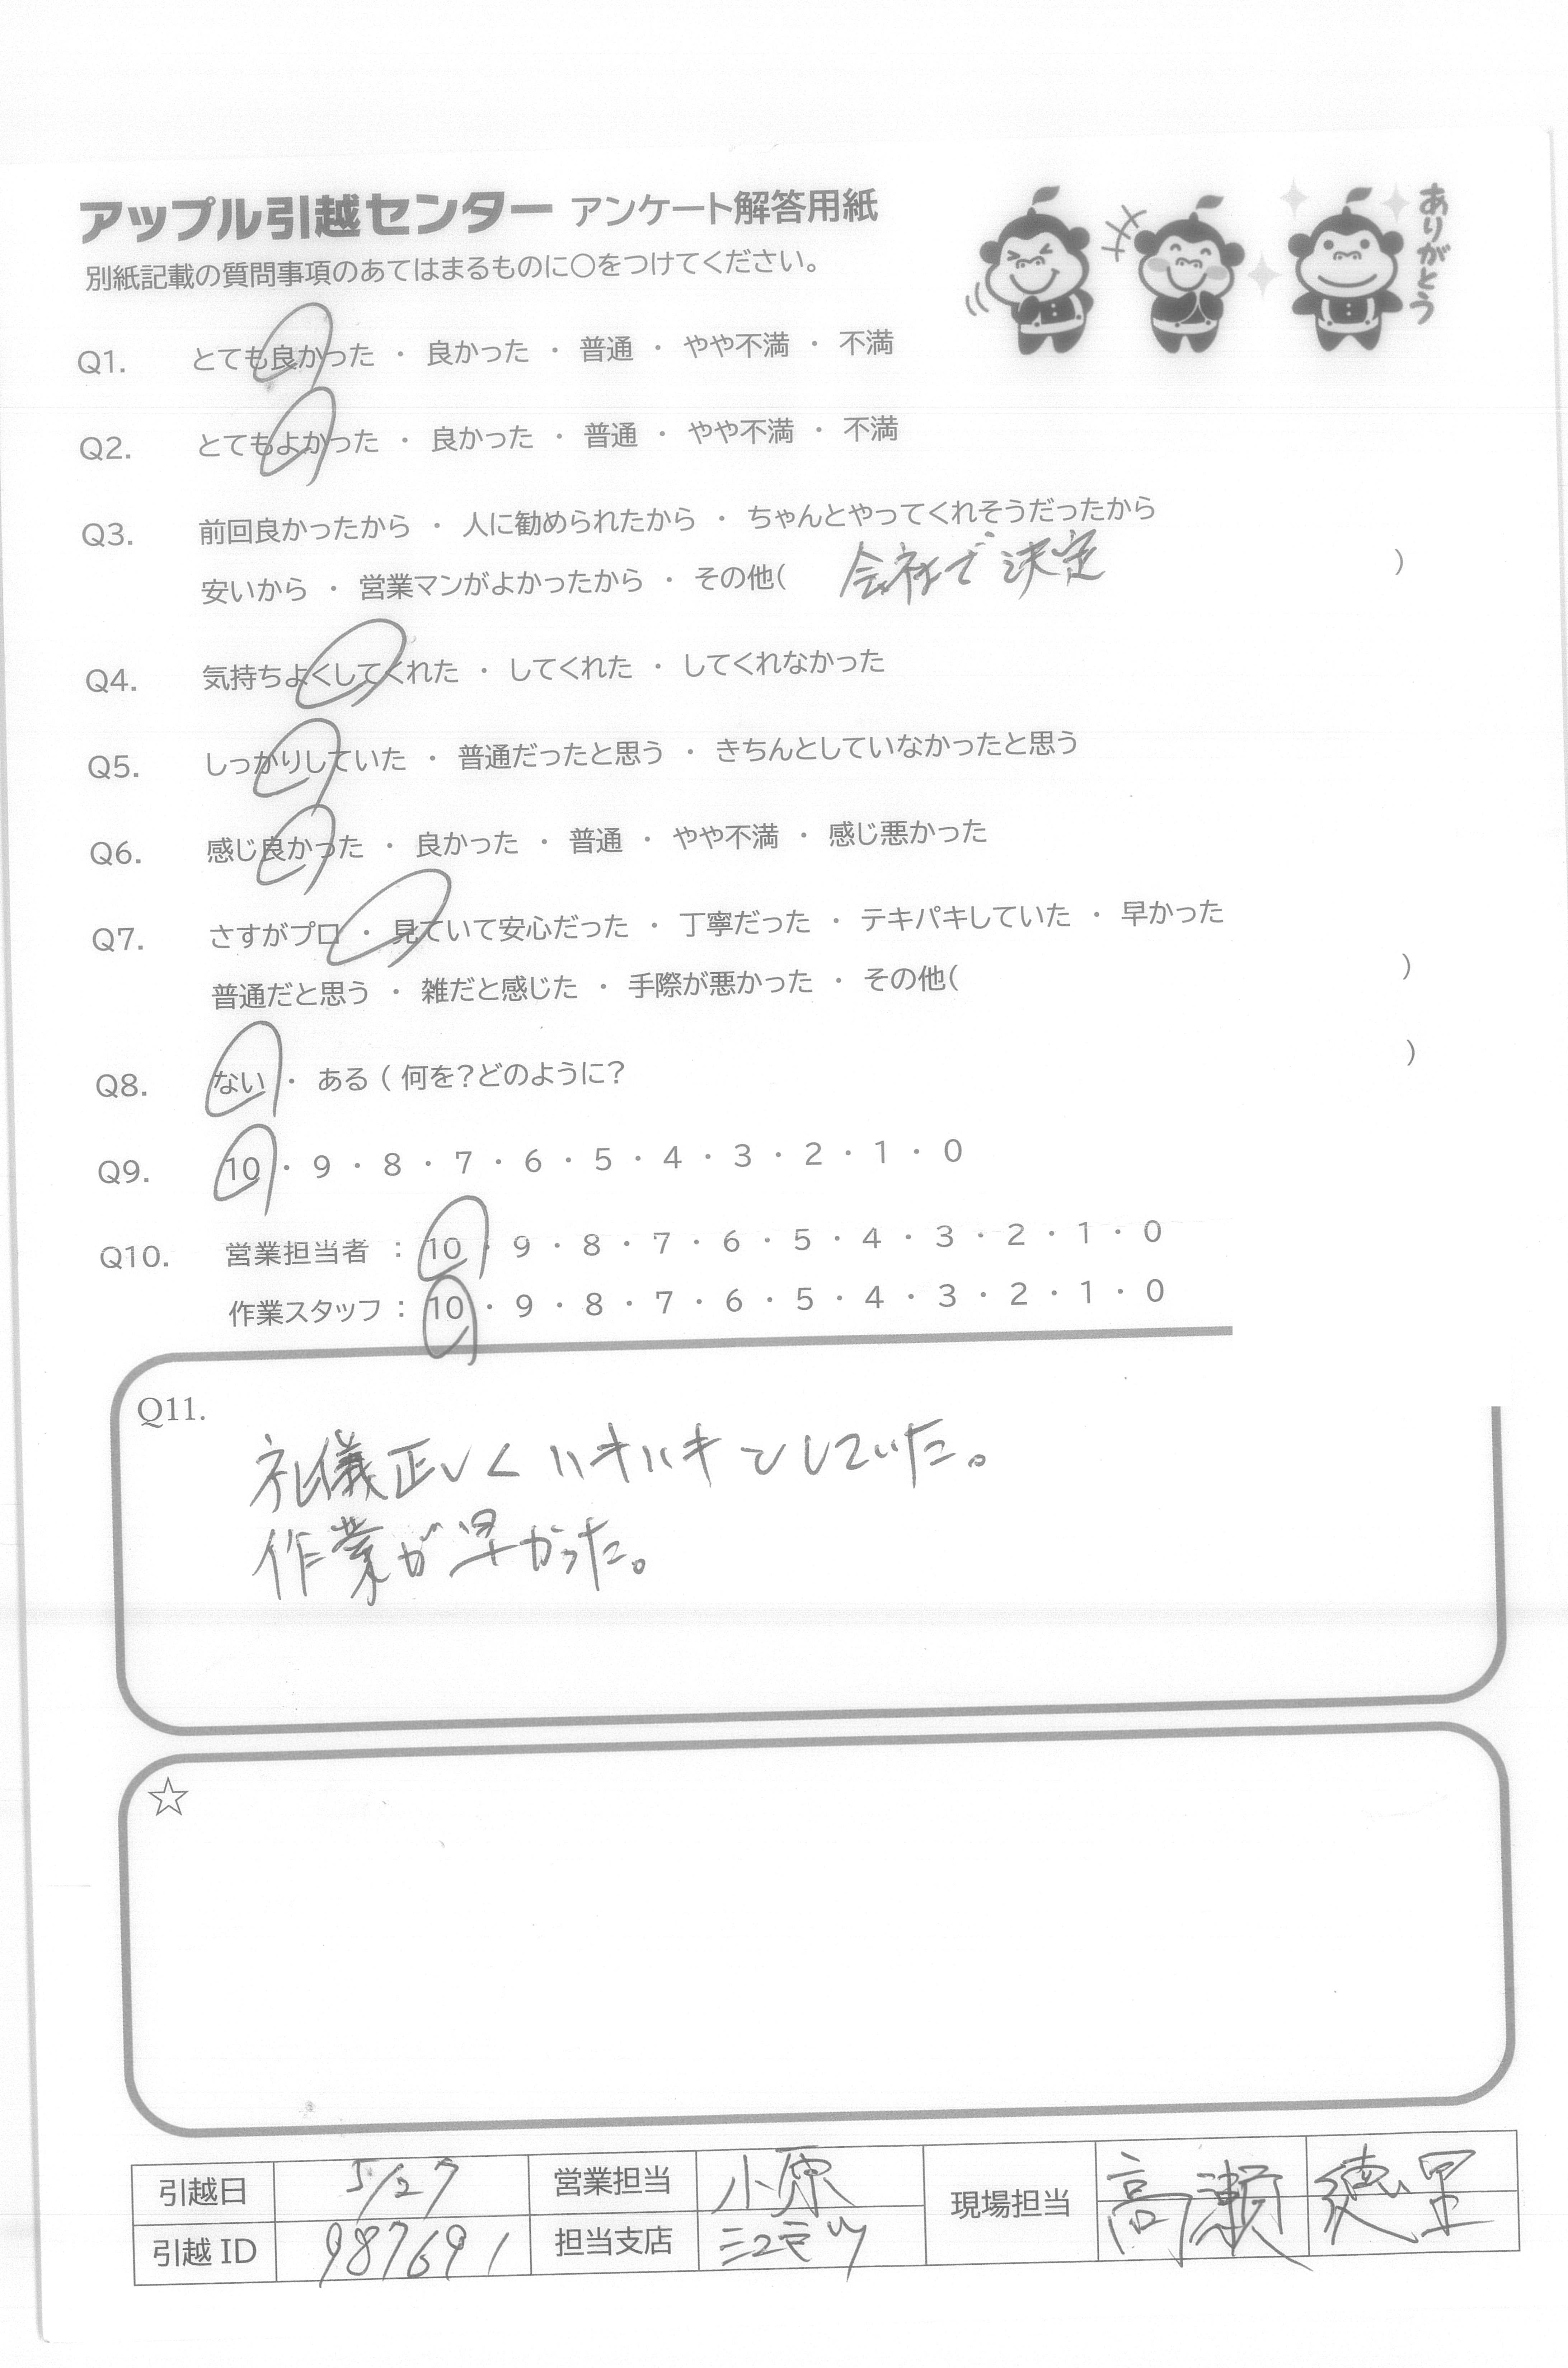 アップル引越センター アンケート解答用紙
ありがとう
別紙記載の質問事項のあてはまるものに○をつけてください。
Q1. とても良かった ・ 良かった ・ 普通 ・ やや不満 ・ 不満
Q2. とてもよかった ・ 良かった ・ 普通 ・ やや不満 ・ 不満
Q3. 前回良かったから ・ 人に勧められたから ・ ちゃんとやってくれそうだったから
安いから ・ 営業マンがよかったから ・ その他( 会社で決定 )
Q4. 気持ちよくしてくれた ・ してくれた ・ してくれなかった
Q5. しっかりしていた ・ 普通だったと思う ・ きちんとしていなかったと思う
Q6. 感じ良かった ・ 良かった ・ 普通 ・ やや不満 ・ 感じ悪かった
Q7. さすがプロ ・ 見ていて安心だった ・ 丁寧だった ・ テキパキしていた ・ 早かった
普通だと思う ・ 雑だと感じた ・ 手際が悪かった ・ その他( )
Q8. ない ・ ある ( 何を?どのように? )
Q9. 10 ・ 9 ・ 8 ・ 7 ・ 6 ・ 5 ・ 4 ・ 3 ・ 2 ・ 1 ・ 0
Q10. 営業担当者 : 10 ・ 9 ・ 8 ・ 7 ・ 6 ・ 5 ・ 4 ・ 3 ・ 2 ・ 1 ・ 0
作業スタッフ : 10 ・ 9 ・ 8 ・ 7 ・ 6 ・ 5 ・ 4 ・ 3 ・ 2 ・ 1 ・ 0
Q11.
礼儀正しくハキハキとしていた。
作業が早かった。
☆
引越日 5/27 営業担当 小原 現場担当 高瀬
引越ID 987691 担当支店